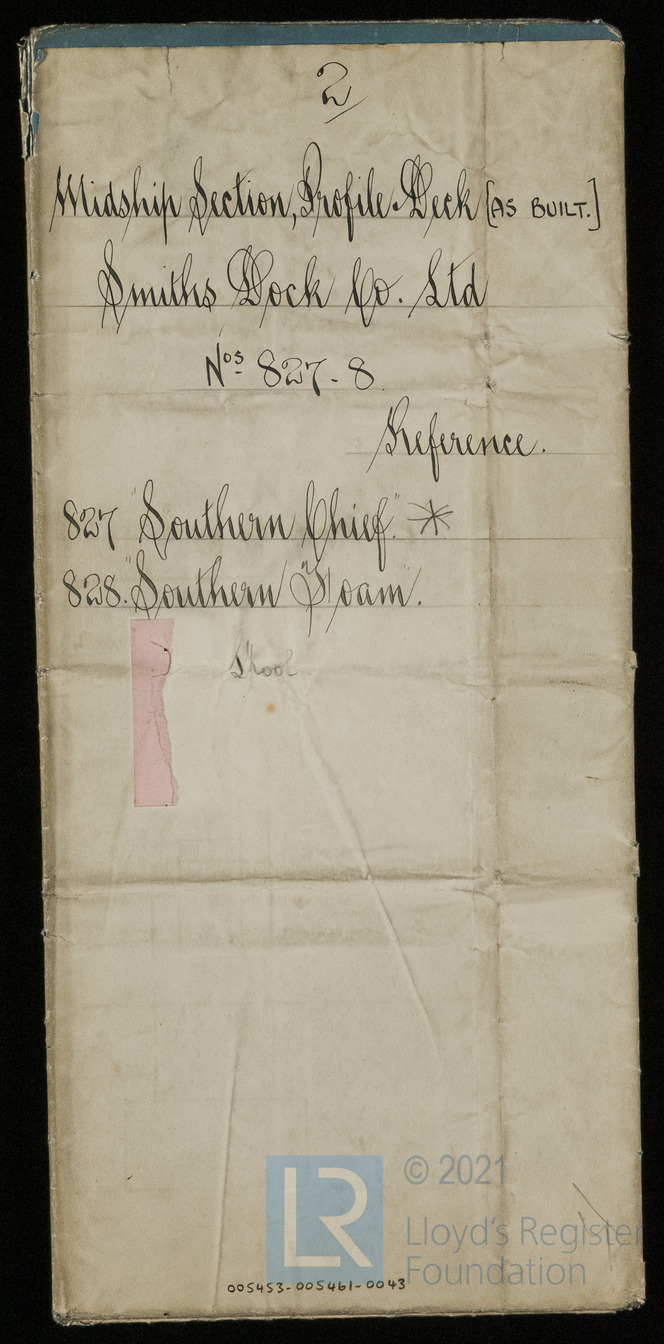 2
Midship Section, Profile & Deck [AS BUILT.]
Smiths Dock Co. Ltd
Nos 827-8
Reference.
827 "Southern Chief" *
828. "Southern Foam".
005453-005461-0043
LR
© 2021
Lloyd's Register
Foundation